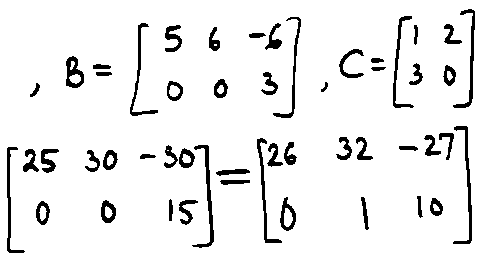 , B = [5 6 -6 0 0 3], C = [1 2 3 0]
[25 30 -30 0 0 15] = [26 32 -27 0 1 10]